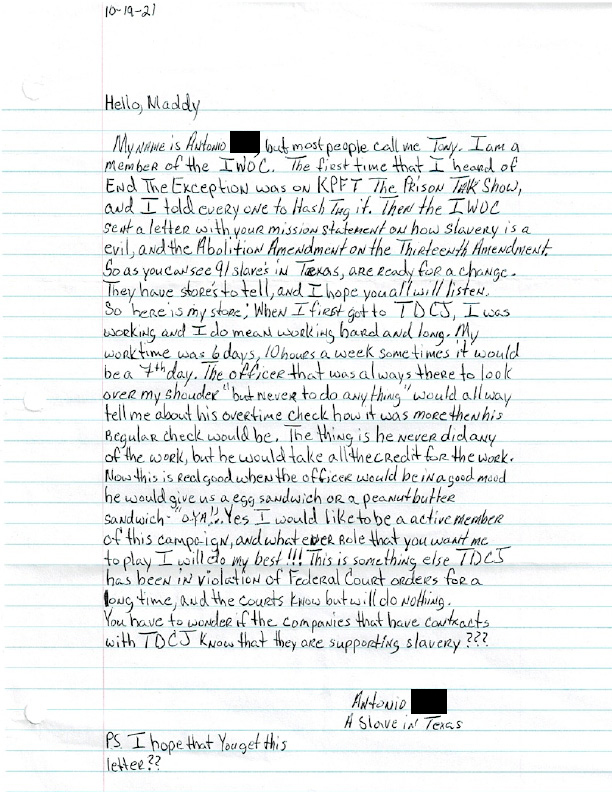 10-19-21
Hello, Maddy
My name is Antonio but most people call me Tony. I am a
member of the IWOC. The first time that I heard of
End The Exception was on KPFT The Prison Talk Show,
and I told every one to Hash Tag it. Then the IWOC
sent a letter with your mission statement on how slavery is a
evil, and the Abolition Amendment on the Thirteenth Amendment.
So as you can see 91 slave's in Texas, are ready for a change.
They have store's to tell, and I hope you all will listen.
So here is my store; When I first got to TDCJ, I was
working and I do mean working hard and long. My
work time was 6 days, 10 hours a week some times it would
be a 7th day. The officer that was always there to look
over my shouder "but never to do any thing" would all way
tell me about his overtime check how it was more then his
Regular check would be. The thing is he never did any
of the work, but he would take all the credit for the work.
Now this is real good when the officer would be in a good mood
he would give us a egg sandwich or a peanut butter
sandwich "OYA!". Yes I would like to be a active member
of this campaign, and what ever Role that you want me
to play I will do my best!!! This is something else TDCJ
has been in violation of Federal Court orders for a
long time, and the courts know but will do nothing.
You have to wonder if the companies that have contracts
with TDCJ know that they are supporting slavery???
Antonio
A Slave in Texas
PS. I hope that You get this
letter??